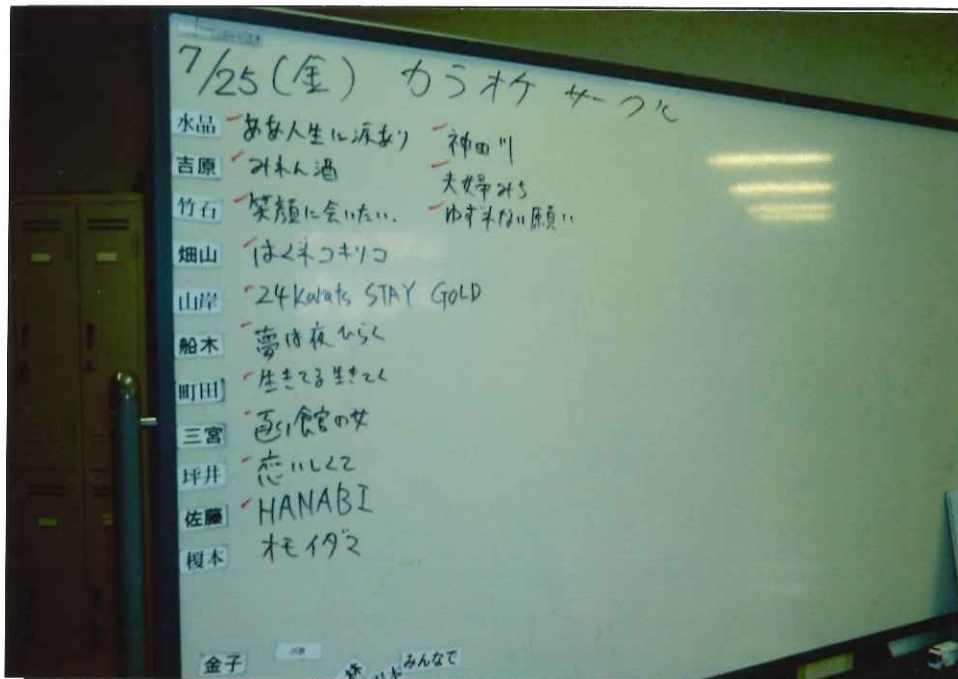 7/25(金) カラオケ サークル
水品 ああ人生に涙あり 神田川
吉原 みれん酒 夫婦みち
竹石 笑顔に会いたい. ゆずれない願い
畑山 はぐれコキリコ
山岸 24karats STAY GOLD
船木 夢は夜ひらく
町田 生きてる生きてく
三宮 函館の女
坪井 恋しくて
佐藤 HANABI
榎本 オモイダマ
金子 みんなで